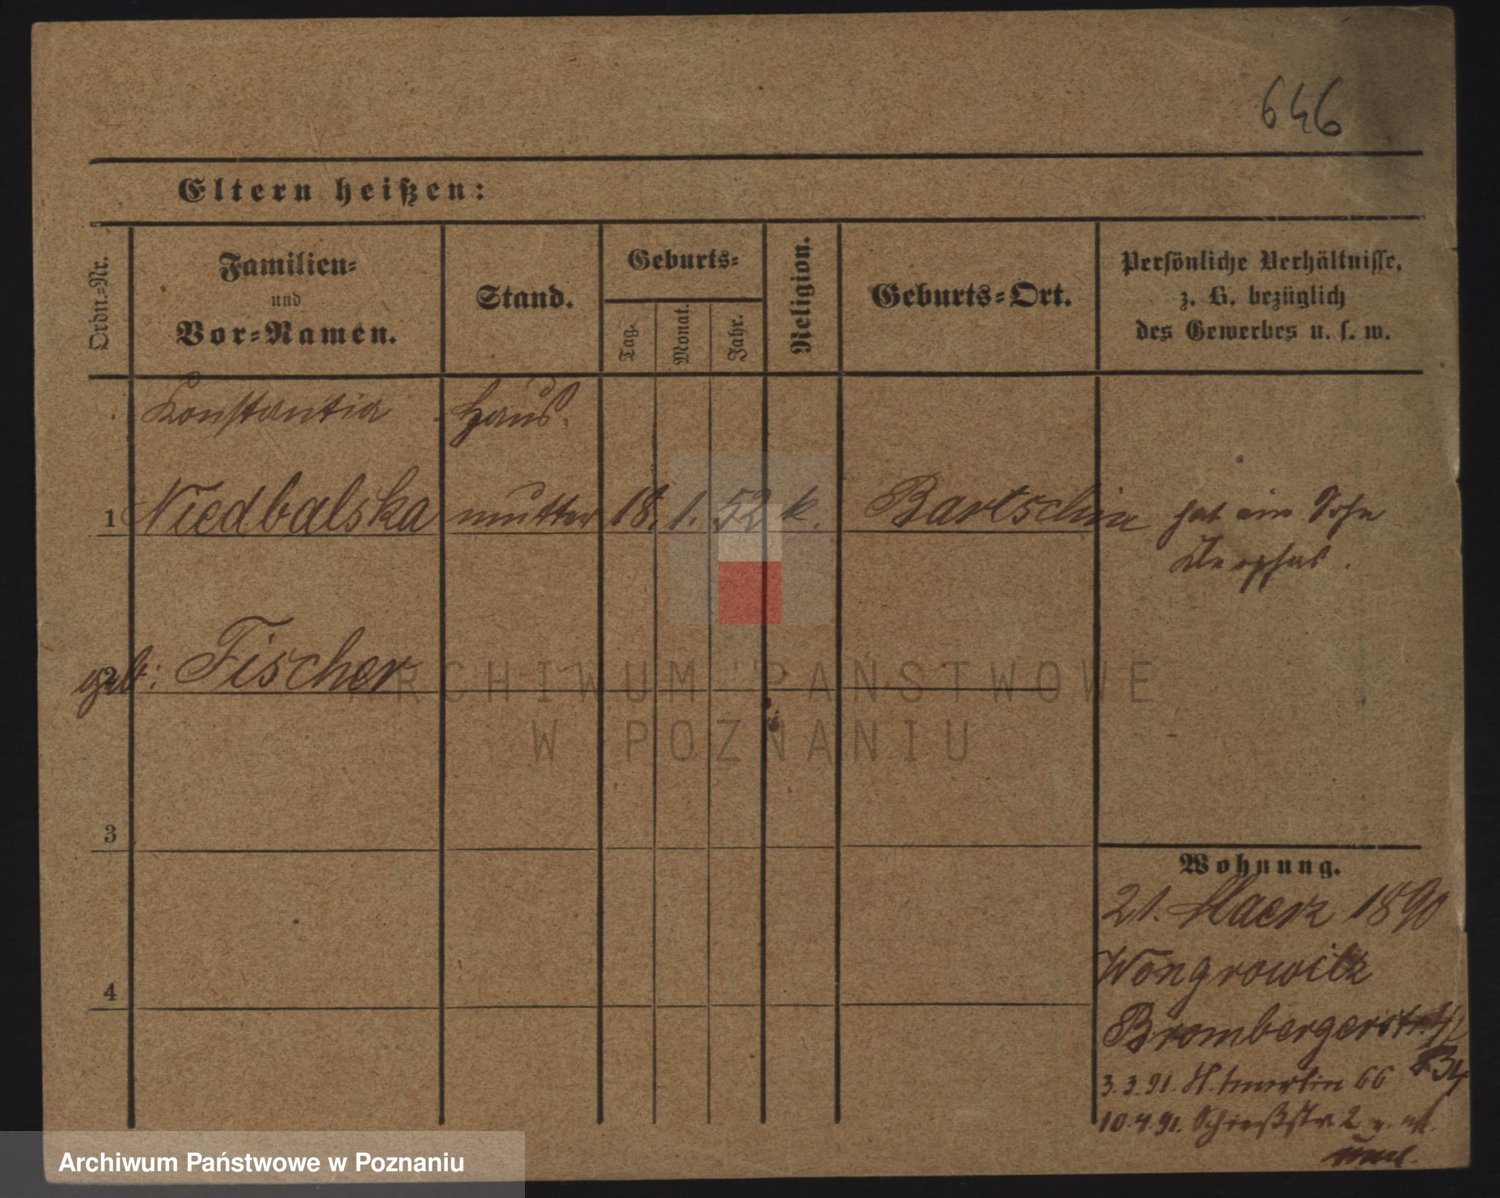 646
Eltern heißen:
Ordn.-Nr.
Familien-
und
Vor-Namen.
Stand.
Geburts-
Tag.
Monat.
Jahr.
Religion.
Geburts-Ort.
Persönliche Verhältnisse,
z. B. bezüglich
des Gewerbes u. s. w.
Konstantia Haus-
1 Niedbalska mutter 18. 1. 52 k. Bartschin hat ein Sohn
geb: Fischer
ARCHIWUM PAŃSTWOWE
W POZNANIU
3
Wohnung.
21. Maerz 1890
Wongrowitz
4
Brombergerstr.
3.3.91. 66 B34
10.4.91. Schießstr 2
Archiwum Państwowe w Poznaniu